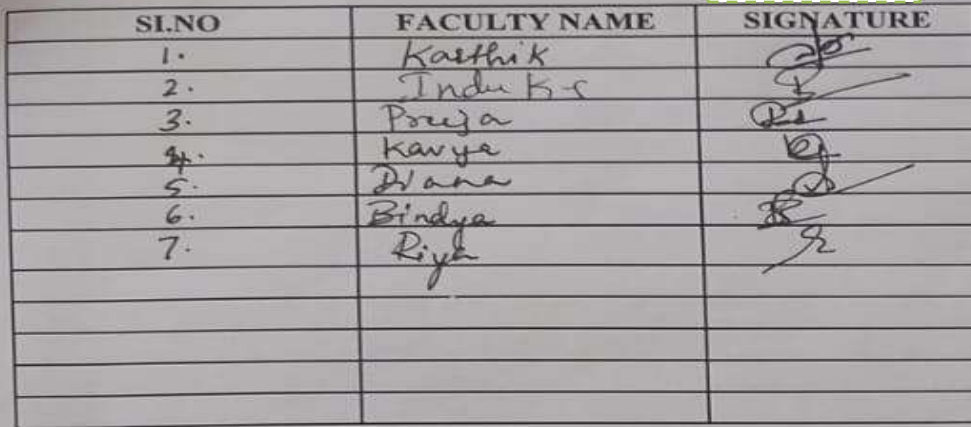 SI.NO FACULTY NAME SIGNATURE
1. Karthik
2. Indu K-S
3. Preeja
4. Kavya
5. Diana
6. Bindya
7. Riya